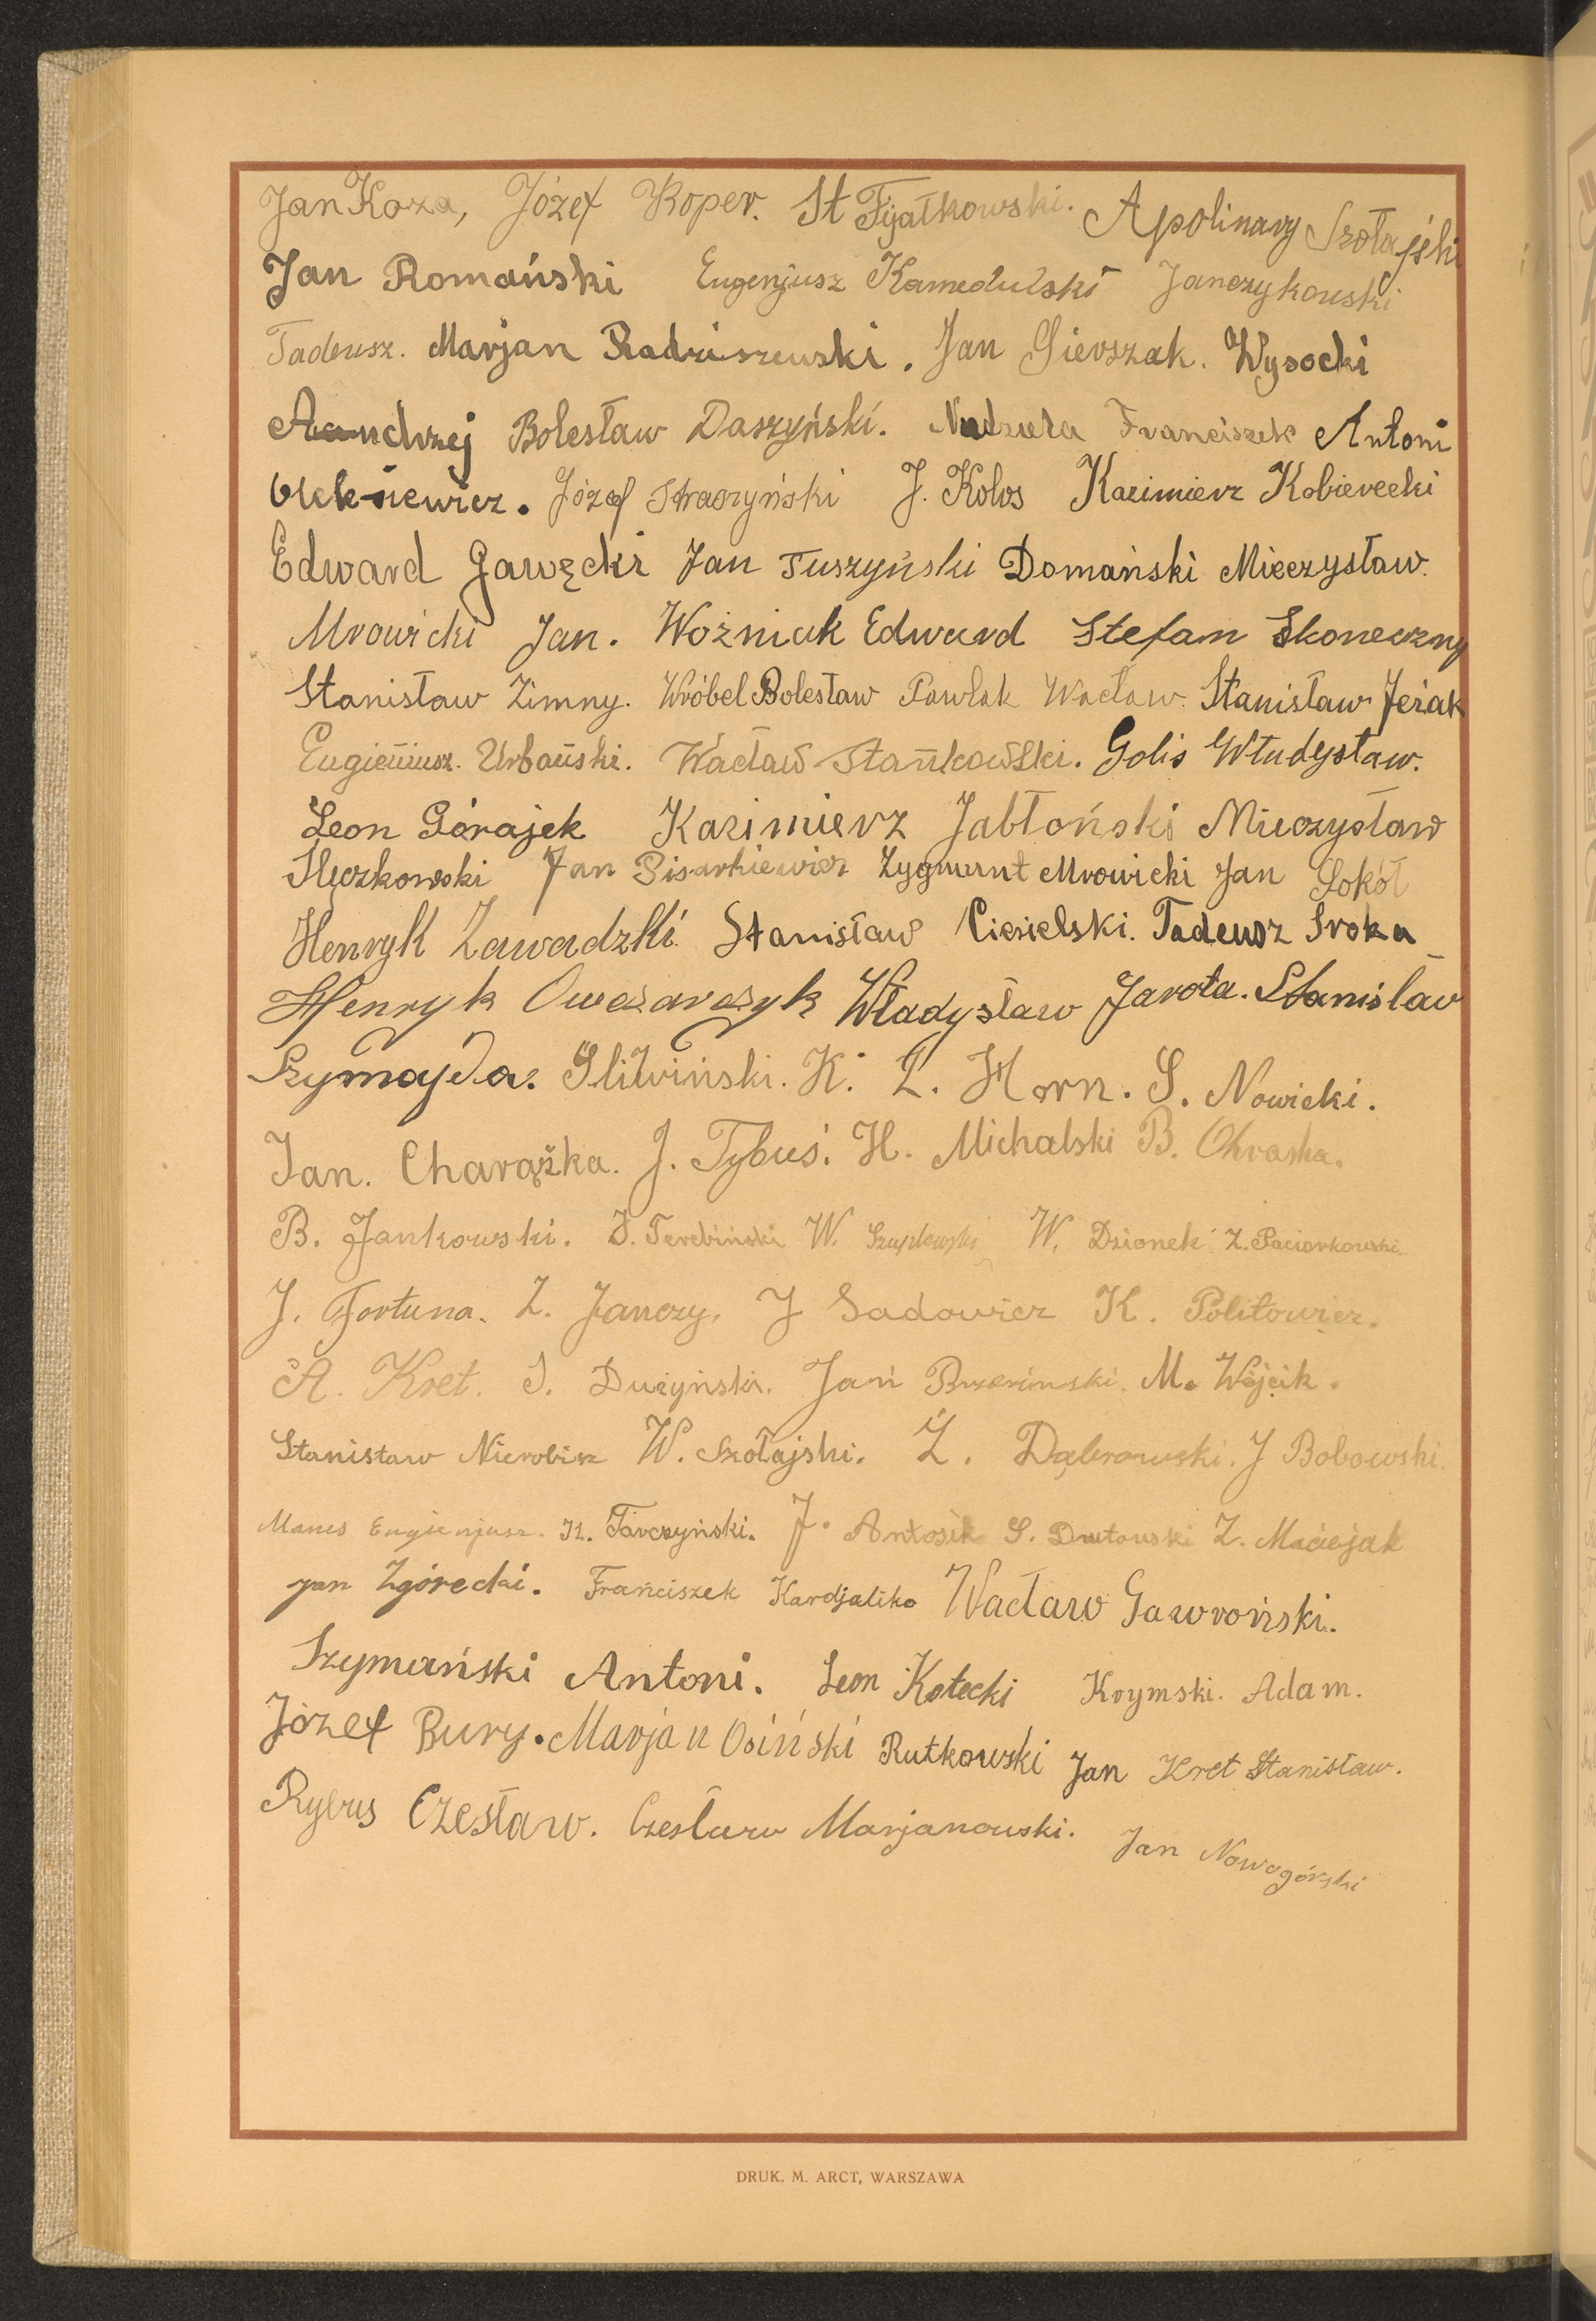 Jan Koza, Józef Koper. St Fijałkowski. Apolinary Szołajski
Jan Romański Eugenjusz Kamedulski Janczykowski
Tadeusz. Marjan Radziszewski. Jan Gierszak. Wysocki
Andrzej Bolesław Daszyński. Franciszek Antoni
Józef Straszyński J. Kolos Kazimierz Kobierecki
Edward Gawęcki Jan Tuszyński Domański Mieczysław.
Mrowicki Jan. Woźniak Edward Stefan Skoneczny
Stanisław Zimny. Wróbel Bolesław Pawlak Wacław. Stanisław Jeżak
Eugieniusz. Urbański. Wacław Stańkowski. Golis Władysław.
Leon Górajek Kazimierz Jabłoński Mieczysław
Jan Pisarkiewicz Zygmunt Mrowicki Jan Sokół
Henryk Zawadzki Stanisław Ciesielski. Tadeusz Sroka
Henryk Owczarczyk Władysław Jarota. Stanisław
Szymajda. Śliwiński. K. Z. Horn. S. Nowicki.
Jan. Charążka. J. Tybuś. H. Michalski B. Okraska.
B. Jankowski. J. Terebiński W. W. Dzionek Z. Paciorkowski.
J. Fortuna. Z. Janczy. J Sadowicz K. Politowicz.
A. Kret. J. Dużyński. Jan Brzeziński. M. Wójcik.
Stanisław Nierobisz W. Szołajski. Z. Dąbrowski. J Bobowski.
Manes Eugienjusz. K. Tarczyński. J. Antosik S. Drutowski Z. Maciejak
Jan Zgórecki. Franciszek Kardjaliko Wacław Gawroński.
Szymański Antoni. Leon Kotecki Krymski. Adam.
Józef Bury. Marjan Osiński Rutkowski Jan Kret Stanisław.
Rybus Czesław. Czesław Marjanowski. Jan Nowogórski
DRUK. M. ARCT, WARSZAWA